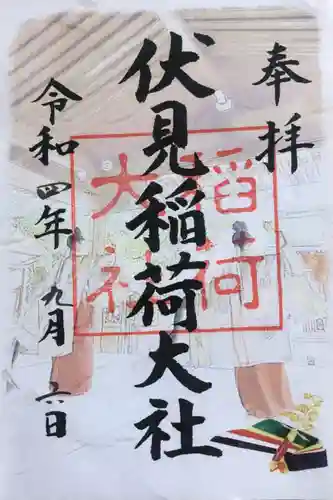 奉拝
伏見稲荷大社
令和四年九月六日
稲荷
大社